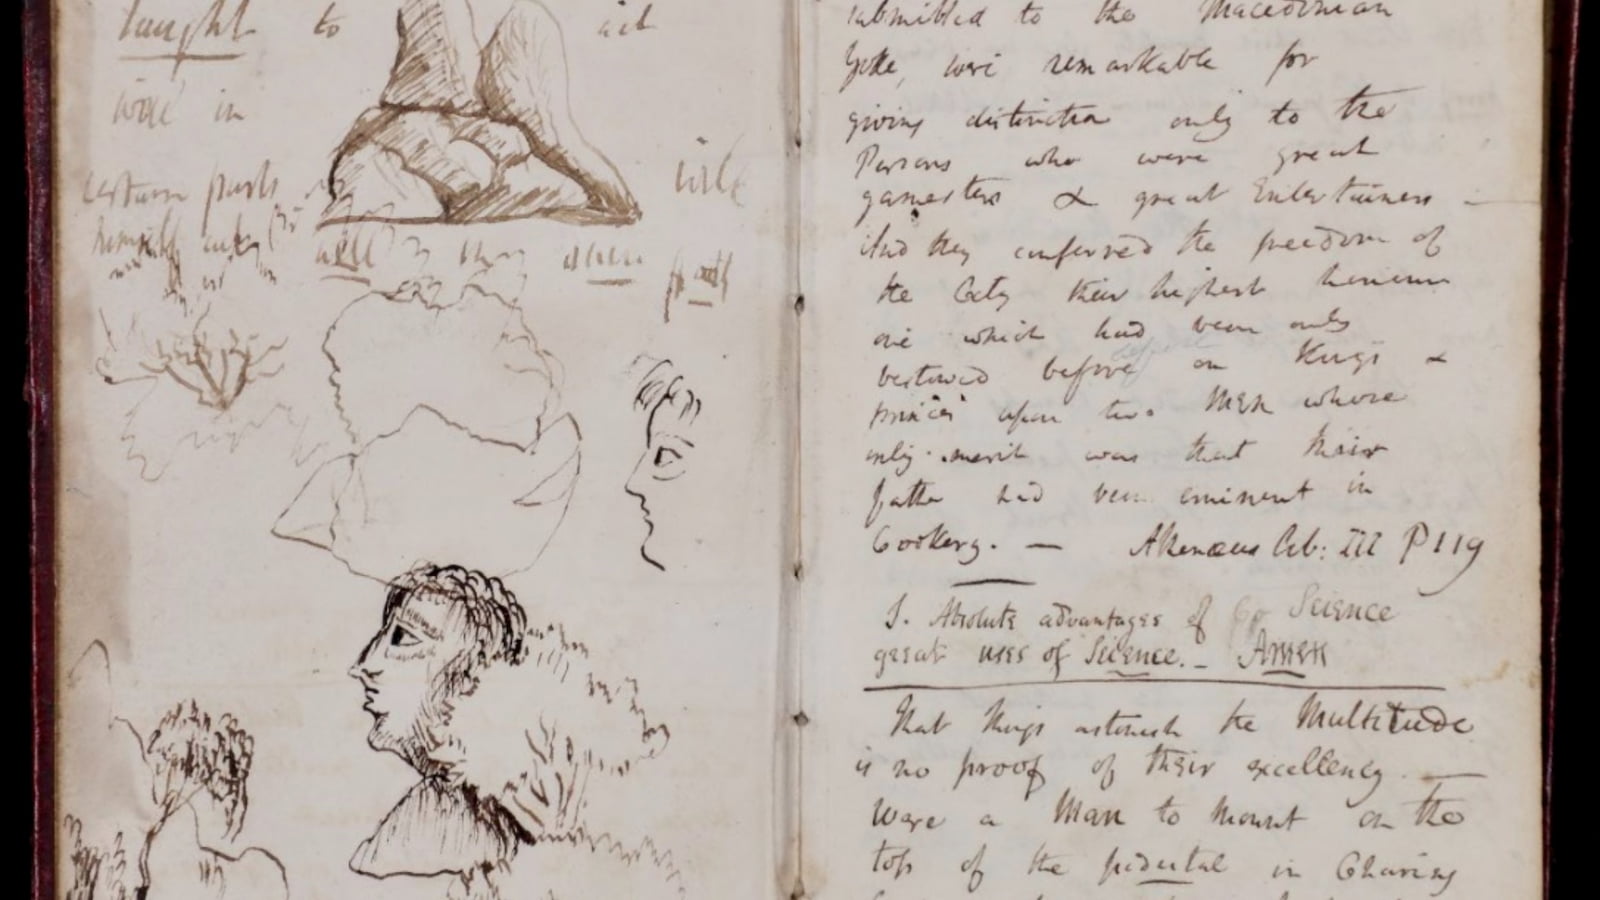 taught to act
well in
certain parts will
himself
well in his own path
submitted to the Macedonian
Yoke, were remarkable for
giving distinction only to the
Persons who were great
gamesters & great Entertainers —
And they conferred the freedom of
the City their highest
one which had been only
bestowed before on Kings &
princes upon two Men whose
only merit was that their
father had been eminent in
Cookery. — Athenæus Lib: III P 119
I. Absolute advantages of Science
great uses of Science. — Amen
That things astonish the Multitude
is no proof of their excellency. —
Were a Man to mount on the
top of the pedestal in Charing